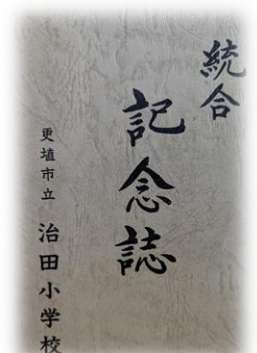 統合
記念誌
更埴市立 治田小学校